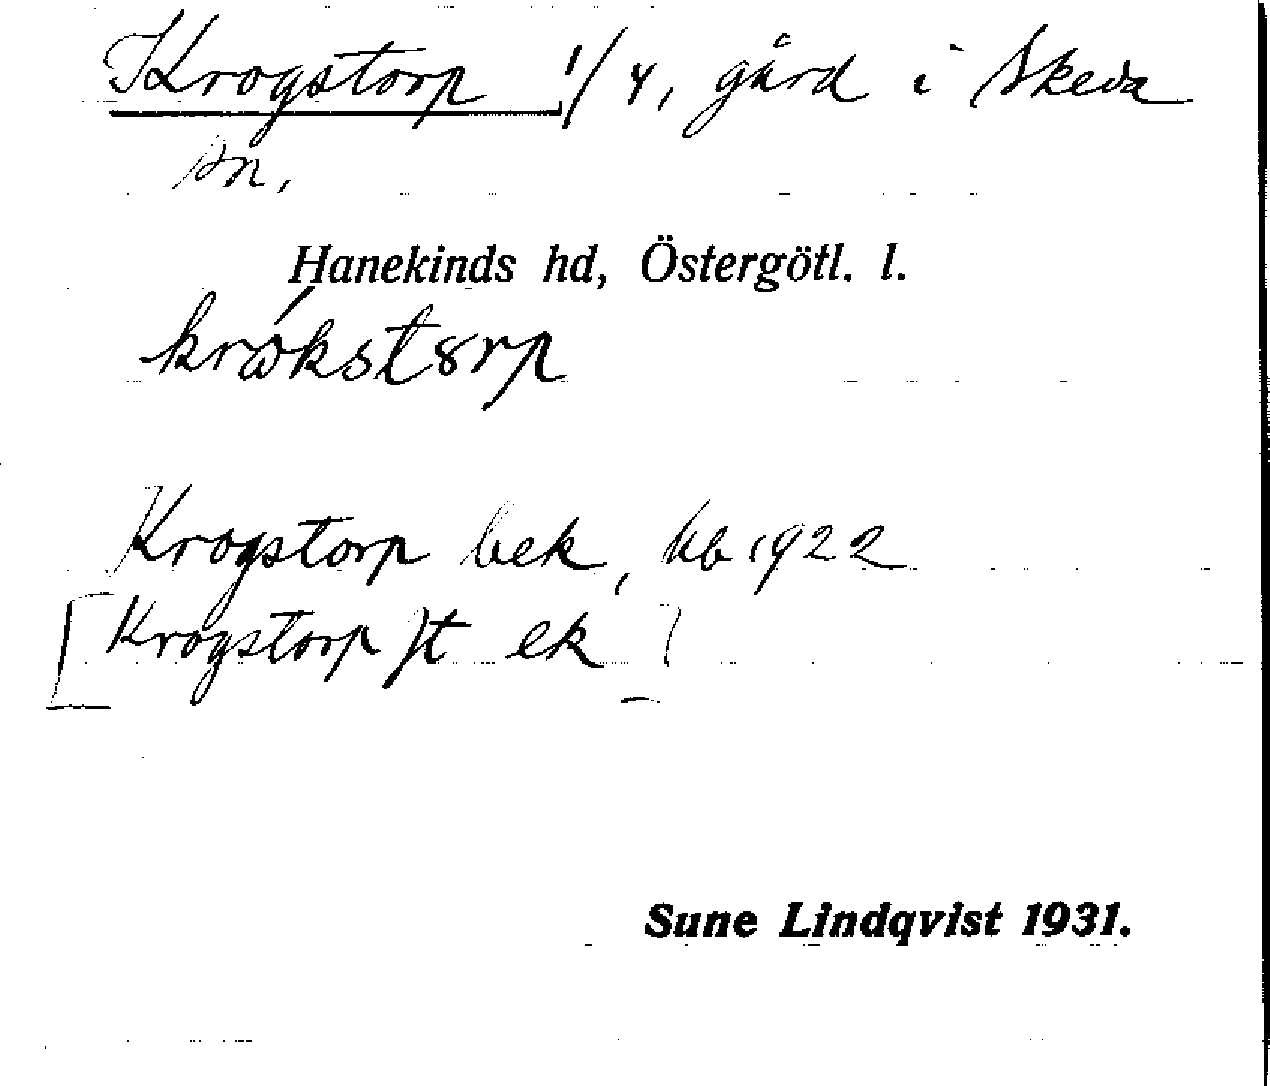 Krogstorp 1/4, gård i Skeda
sn,
Hanekinds hd, Östergötl. l.
kråkstorp
Krogstorp bek, kb 1922
[Krogstorp Jt ek]
Sune Lindqvist 1931.